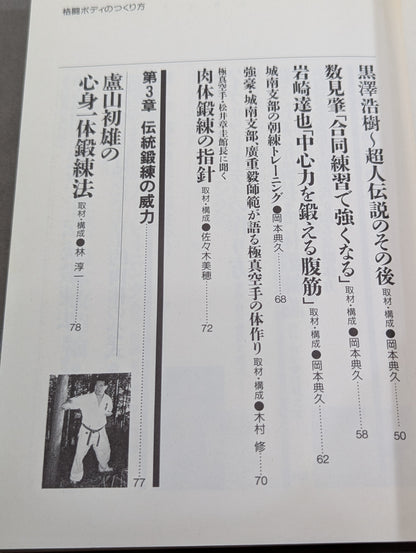 格闘ボディのつくり方
黒澤浩樹〜超人伝説のその後 取材・構成●岡本典久 50
数見肇「合同練習で強くなる」 取材・構成●岡本典久 58
岩崎達也「中心力を鍛える腹筋」 取材・構成●岡本典久 62
城南支部の朝練トレーニング●岡本典久 68
強豪・城南支部、廣重毅師範が語る極真空手の体作り 取材・構成●木村 修 70
極真空手・松井章圭館長に聞く
肉体鍛練の指針 取材・構成●佐々木美穂 72
第3章 伝統鍛練の威力 77
盧山初雄の
心身一体鍛練法 取材・構成●林 淳一 78